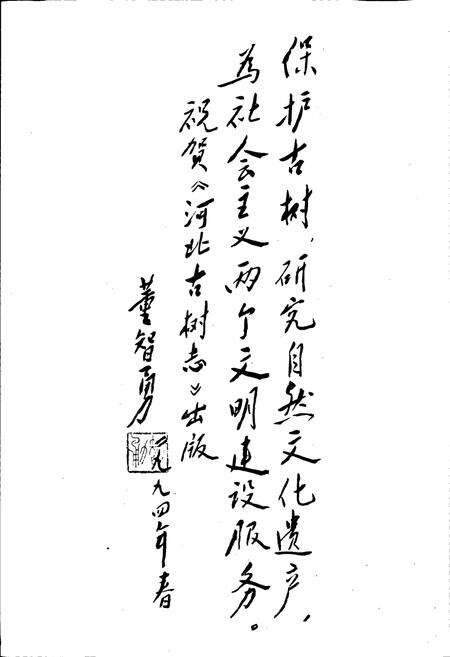 保护古树，研究自然文化遗产，
为社会主义两个文明建设服务。
祝贺《河北古树志》出版
董智勇
一九九四年春